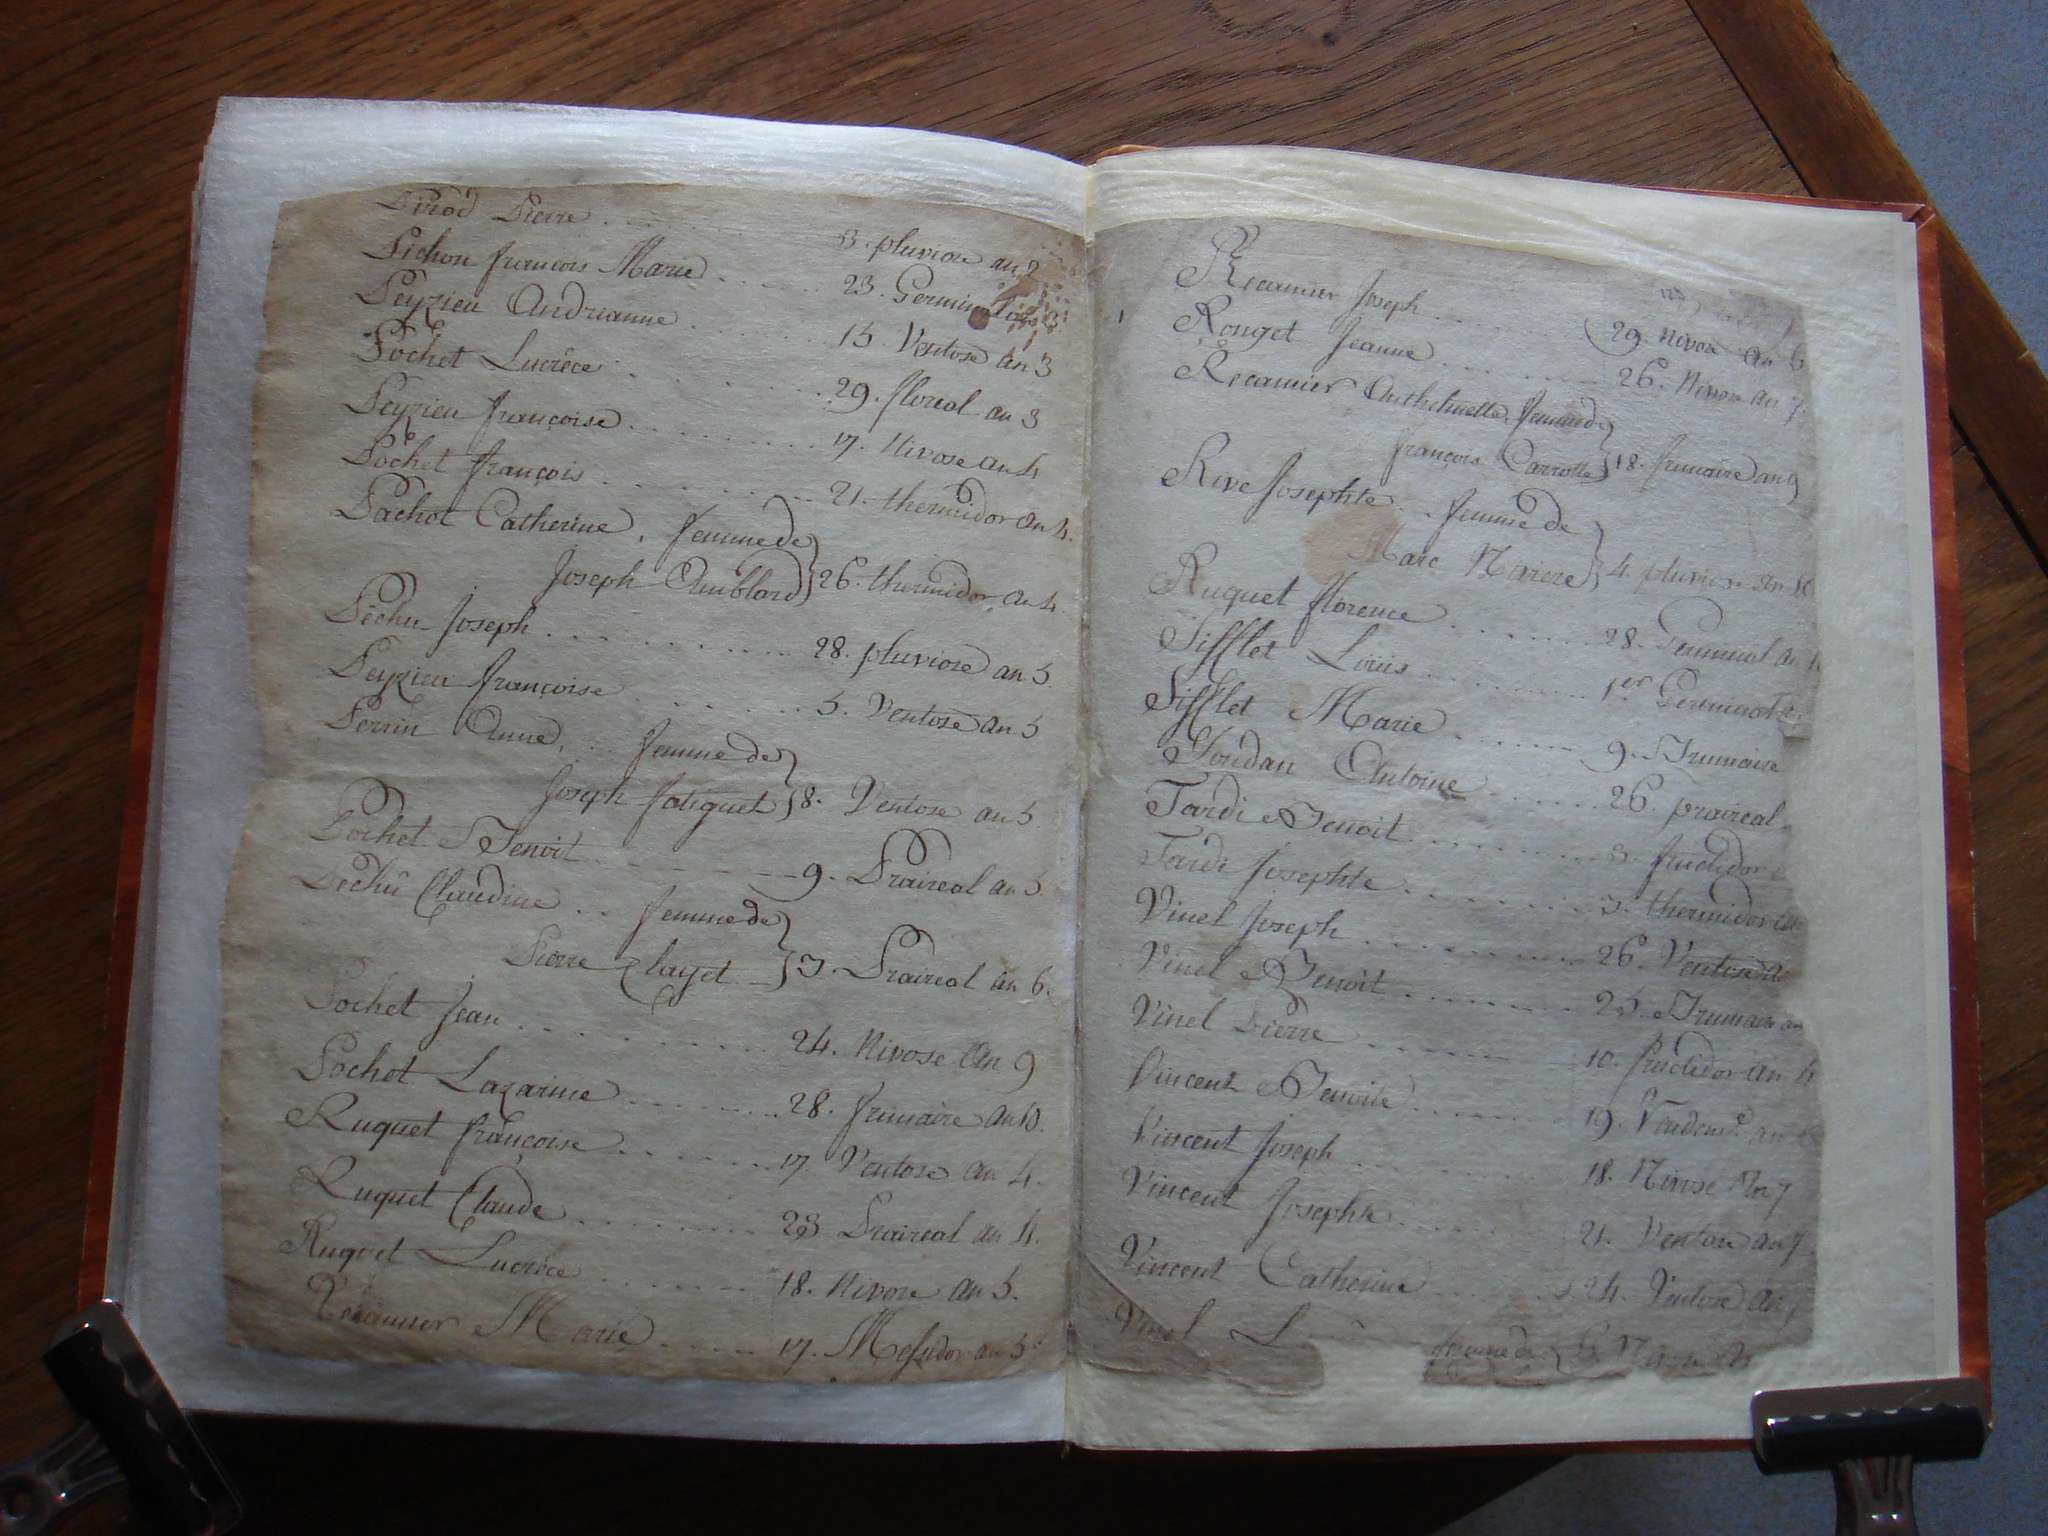 Pirod Pierre . . . . . 3. pluviose an 2
Pichon françois Marie . . . . . 23. Germinal an 3
Peyzieu Andrianne . . . . . 15. Ventose an 3
Pochet Lucrèce . . . . . 29. floreal an 3
Peyzieu françoise . . . . . 17. Nivose an 4
Pochet françois . . . . . 21. thermidor an 4.
Pachot Catherine, femme de
Joseph Aublard } 26. thermidor an 4.
Péchu Joseph . . . . . 28. pluviose an 5
Peyzieu françoise . . . . . 5. Ventose an 5
Perrin Anne, . . femme de
Joseph foliguet } 8. Ventose an 5
Pochet Benoit . . . . . 9. Praireal an 5
Péchu Claudine . . femme de
Pierre Clayet } 3. Praireal an 6.
Pochet Jean . . . . . 24. Nivose an 9
Pochet Lazarine . . . . . 28. frimaire an 10.
Ruquet françoise . . . . . 17. Ventose an 4.
Ruquet Claude . . . . . 23 Praireal an 4.
Ruquet Lucrèce . . . . . 18. Nivose an 5.
Récamier Marie . . . . . 17. Messidor an 5
Récamier Joseph . . . . . 29. Nivose an 6
Rouget Jeanne . . . . . 26. Nivose an 7.
Récamier Anthelmette femme de
françois Carrotte } 18. frimaire an 9
Rive Josephte . . femme de
Marc Navere } 4. pluviose an 10
Ruquet florence . . . . . 28. Germinal an
Sifflet Loüis . . . . . 1er Germinal
Sifflet Marie . . . . . 9. Brumaire
Soudan Antoine . . . . . 26. praireal
Tardi Benoit . . . . . 3. fructidor
Tardi Josephte . . . . . 3. thermidor an
Vinel Joseph . . . . . 26. Ventose
Vinel Benoit . . . . . 25. Brumaire an
Vinel Pierre . . . . . 10. fructidor an 4
Vincent Benoite . . . . . 19. Vendem.re an
Vincent Joseph . . . . . 18. Nivose An 7
Vincent Josephte . . . . . 21. Ventose an 7
Vincent Catherine . . . . . 24. Ventose an
Vinel femme de